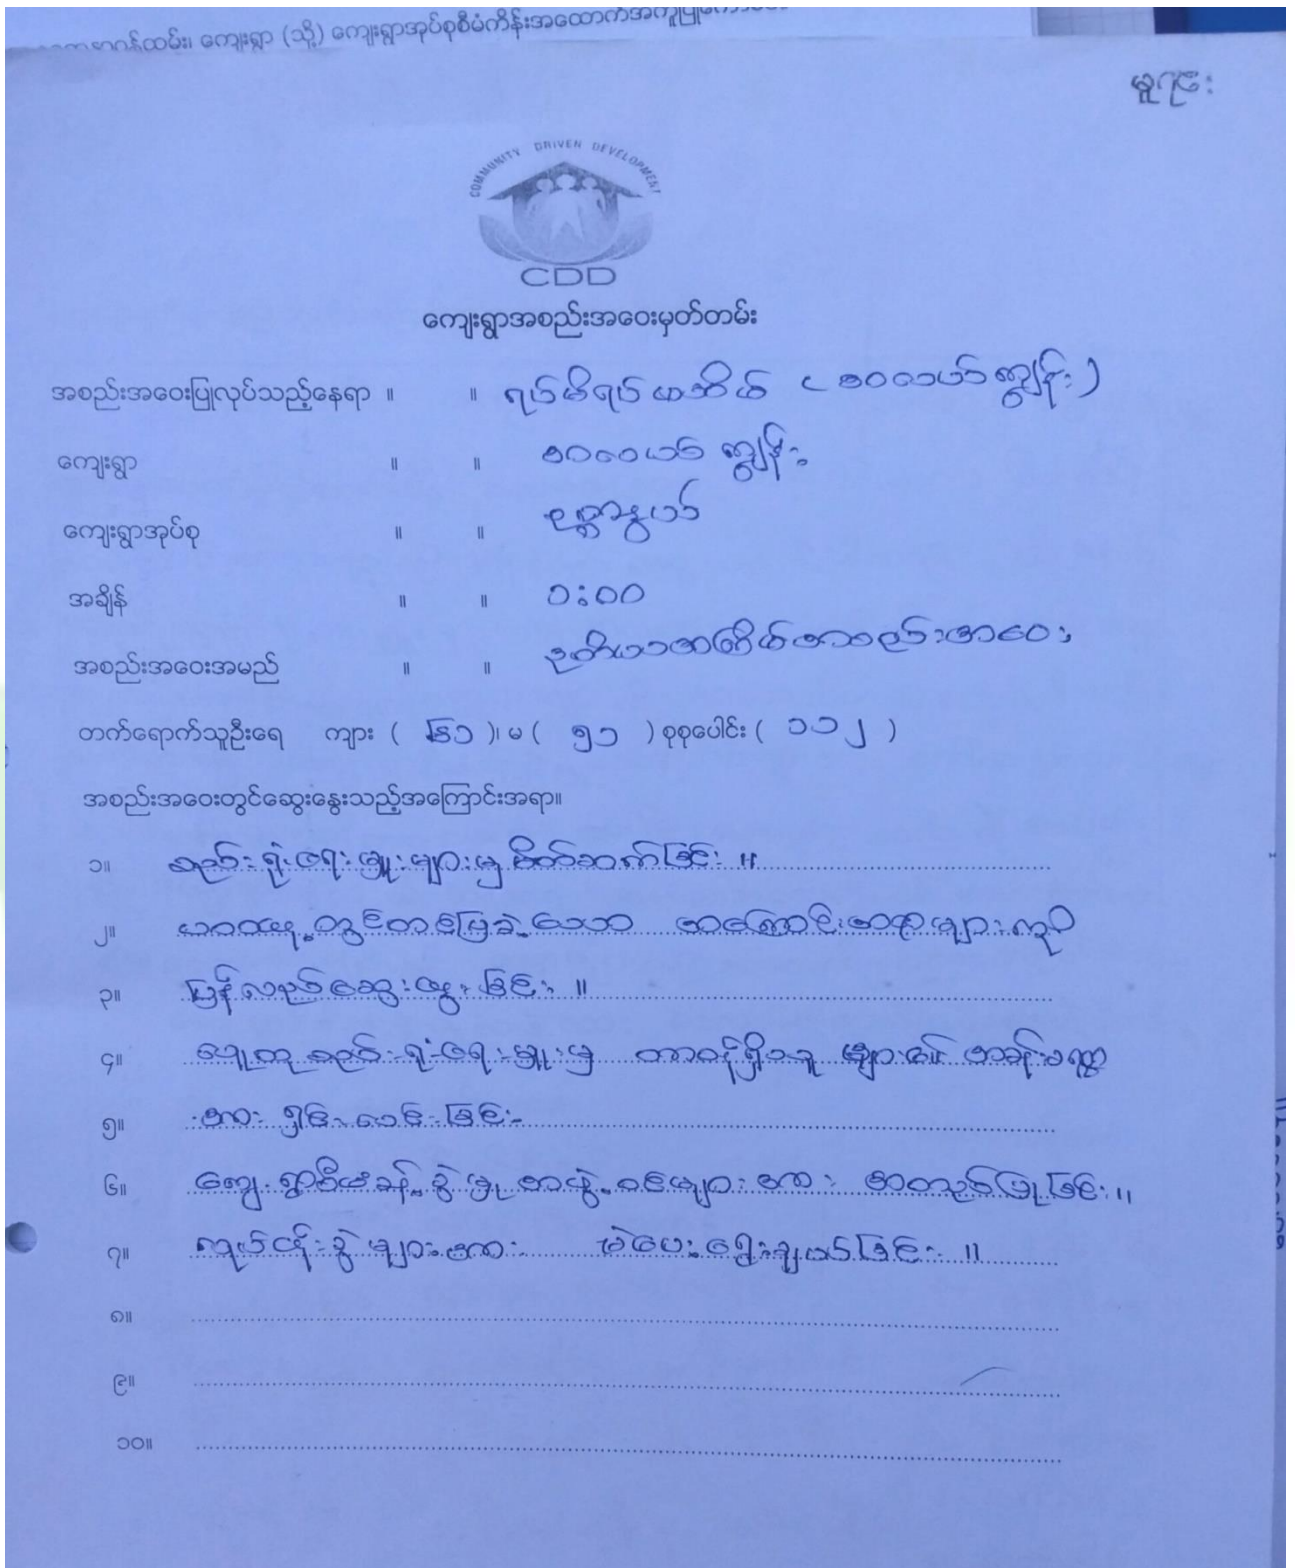 ကျေးရွာ (သို့) ကျေးရွာအုပ်စုစီမံကိန်းအထောက်အကူပြု
မူရင်း
COMMUNITY DRIVEN DEVELOPMENT
CDD
ကျေးရွာအစည်းအဝေးမှတ်တမ်း
အစည်းအဝေးပြုလုပ်သည့်နေရာ ။ ။ ရပ်မိရပ်ဖအိမ် ( စပယ်ကျွန်း )
ကျေးရွာ ။ ။ ကျွန်း
ကျေးရွာအုပ်စု ။ ။
အချိန် ။ ။ ၁:၀၀
အစည်းအဝေးအမည် ။ ။ ဒုတိယအကြိမ်အစည်းအဝေး
တက်ရောက်သူဦးရေ ကျား ( ၆၁ )၊ မ ( ၅၁ ) စုစုပေါင်း ( ၁၁၂ )
အစည်းအဝေးတွင်ဆွေးနွေးသည့်အကြောင်းအရာ။
၁။ စည်းရုံးရေးမှူးများမှ မိတ်ဆက်ခြင်း ။
၂။ ယမန်နေ့တွင်တင်ပြခဲ့သော အကြောင်းအရာများကို
၃။ ပြန်လည်ဆွေးနွေးခြင်း ။
၄။ လူထုစည်းရုံးရေးမှူးမှ တာဝန်ရှိသူများ၏ အခန်းကဏ္ဍ
၅။ အား ရှင်းလင်းခြင်း
၆။ ကျေးရွာစီမံခန့်ခွဲမှုအဖွဲ့ဝင်များအား အတည်ပြုခြင်း ။
၇။ လုပ်ငန်းခွဲများအား မဲပေးရွေးချယ်ခြင်း ။
၈။
၉။
၁၀။